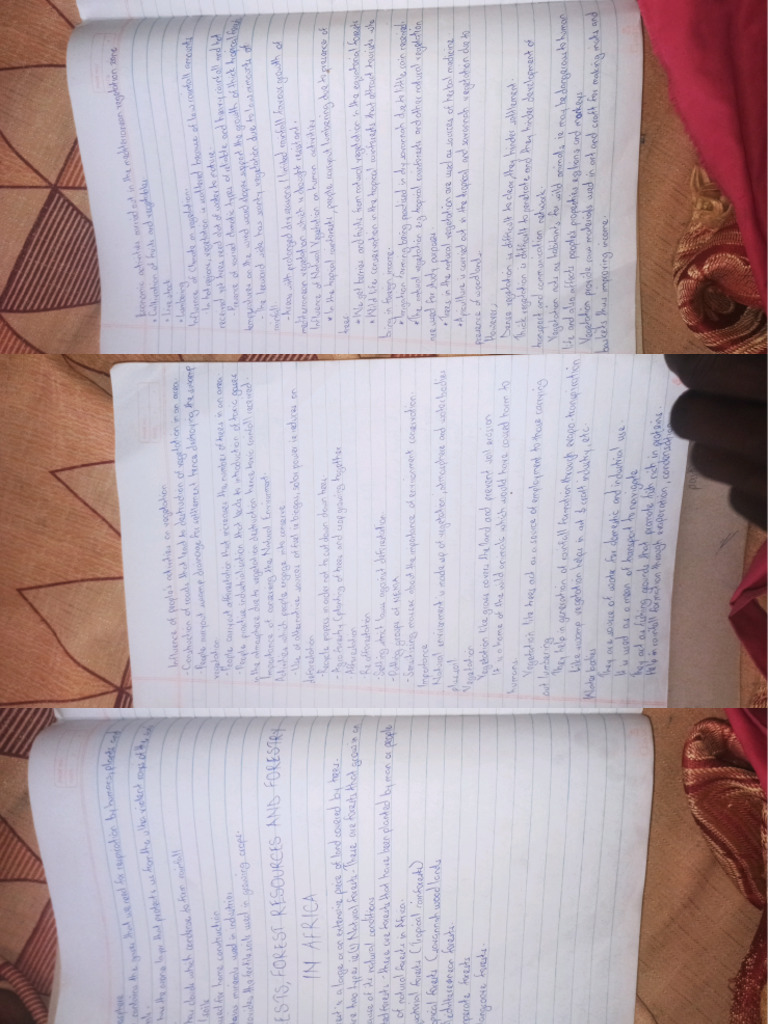 Economic activities carried out in the mediterranean vegetation zone
• Cultivation of fruits and vegetables
• Livestock
• Lumbering
Influence of climate on vegetation
In hot regions, vegetation is scattered because of low rainfall amounts
received yet trees need alot of water to mature.
Presence of varied climatic types of climate and heavy rainfall and hot
temperatures on the wind ward slopes support the growth of thick tropical forest
- The leeward side has scanty vegetation due to low amounts of
rainfall.
- Areas with prolonged dry seasons/limited rainfall favours growth of
mediterranean vegetation which is drought resistant.
Influence of Natural Vegetation on human activities
• In the tropical rainforests, people carryout lumbering due to presence of
trees
• We get berries and fruits from natural vegetation in the equatorial forests
• Wild life conservation in the tropical rainforests that attract tourists who
bring in foreign income.
• Irrigation farming being practised in the savannah due to little rain received
• The natural vegetation e.g tropical rainforests and other natural vegetation
are used for study purpose
• Trees in the natural vegetation are used as sources of herbal medicine
• Apiculture is carried out in the tropical and savannah vegetation due to
presence of woodland.
However,
Dense vegetation is difficult to clear, they hinder settlement.
Thick vegetation is difficult to penetrate and they hinder development of
transport and communication network.
Vegetation acts as habitants for wild animals ie may be dangerous to human
life and also affects people's properties eg lions and monkeys
Vegetation provide raw materials used in art and craft for making mats and
baskets thus improving income.
Influence of people's activities on vegetation
- Construction of roads that lead to destruction of vegetation in an area.
- People carryout swamp drainage for settlement hence destroying the swamp
vegetation
- People carryout afforestation that increases the number of trees in an area
- People practise industrialisation that leads to introduction of toxic gases
in the atmosphere due to vegetation destruction hence toxic rainfall received.
Importance of conserving the Natural Environment
Activities which people engage into conserve
- Use of alternative sources of fuel ie biogas, solar power ie reduces on
deforestation
- Agro forestry (planting of trees and crop growing together
Afforestation
- Re afforestation
- Setting strict laws against deforestation
- Sensitising masses about the importance of environment conservation
Importance
Natural environment is made up of vegetation, atmosphere and water bodies
Vegetation
Vegetation like grass covers the land and prevent soil erosion
It is a home of the wild animals which would have caused harm to
humans.
Vegetation like trees act as a source of employment to those carrying
out lumbering
They help in generation of rainfall formation through evapo transpiration
like swamp vegetation helps in art & craft industry, etc
Water bodies
They are source of water for domestic and industrial use
It is used as a mean of transport to navigate
They act as fishing grounds that promote fish rich in proteins.
Help in rainfall formation through evaporation, condensation
contains the gases that we need for respiration by humans, plants and
has the ozone layer that protects us from the ultra violent rays of the sun
has clouds which condense to form rainfall
used for home construction
minerals used in industries
provides the fertile soils used in growing crops.
ESTS, FOREST RESOURCES AND FORESTRY
IN AFRICA
is a large or an extensive piece of land covered by trees.
are two types ie (i) Natural forests - These are forests that grow in an
of its natural conditions
forests - These are forests that have been planted by man or people
of natural forests in Africa.
forests (Tropical rainforests)
forests (savannah wood lands
mediterranean forests.
forests
mangrove forests.